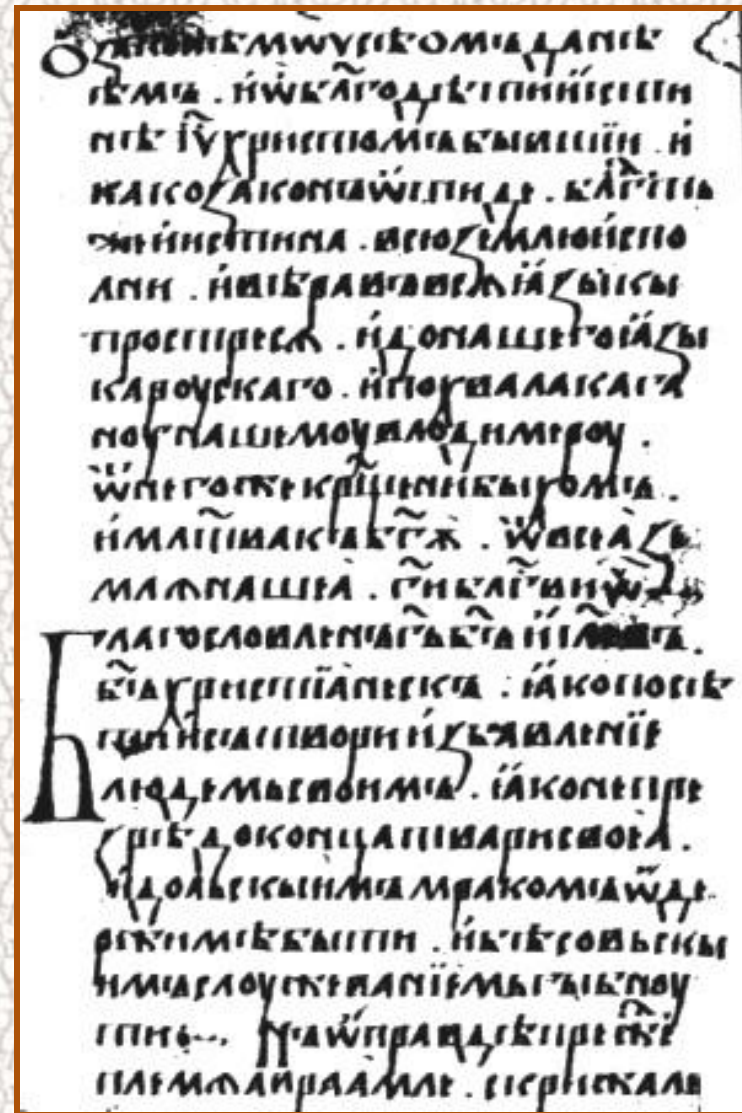 О законѣ мѡѵсѣомъ данѣ
ѣмъ . и҆ ѡ҆ блг҃одѣти и҆ и҆сти
нѣ і҆с҃ христомъ бывшїи . и҆
како законъ ѿиде . блг҃ть
же и҆ и҆стина . всю землю и҆спо
лни . и҆ вѣра въ всѧ ꙗ҆зыкы
простресѧ . и҆ до нашего ꙗ҆зы
ка роускаго . и҆ похвала кага
ноу нашемоу влодимероу .
ѿ него же кр҃щени быхомъ .
и҆ мл҃тва къ б҃ꙋ . ѿ всеа̀ зе
млѧ нашеа̀ . г҃и бл҃гви ѿч҃е
Благословленъ г҃ь б҃ъ і҆и҃левъ .
б҃ъ христїа҆нескъ . ꙗ҆ко посѣ
ти и҆ сътвори и҆збавленїе
людемь своимъ . ꙗ҆ко не пре
зрѣ до конца твари своеа̀ .
и҆дольскыи҆мъ мракомъ ѡ҆де
ржимѣ быти . и҆ бѣсовьскы
имъ слоужеванїемь гыбноу
ти . нъ ѡ҆правдѣ преж҃е
племѧ а҆враа́мле . скрижальѧ